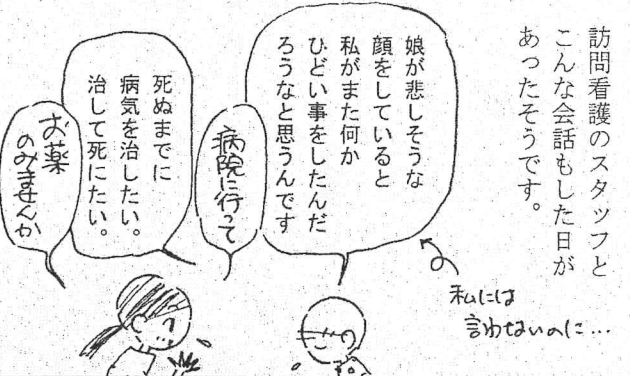 訪問看護のスタッフと
こんな会話もした日が
あったそうです。
娘が悲しそうな
顔をしていると
私がまた何か
ひどい事をしたんだ
ろうなと思うんです
私には
言わないのに…
病院に行って
死ぬまでに
病気を治したい。
治して死にたい。
お薬
のみませんか